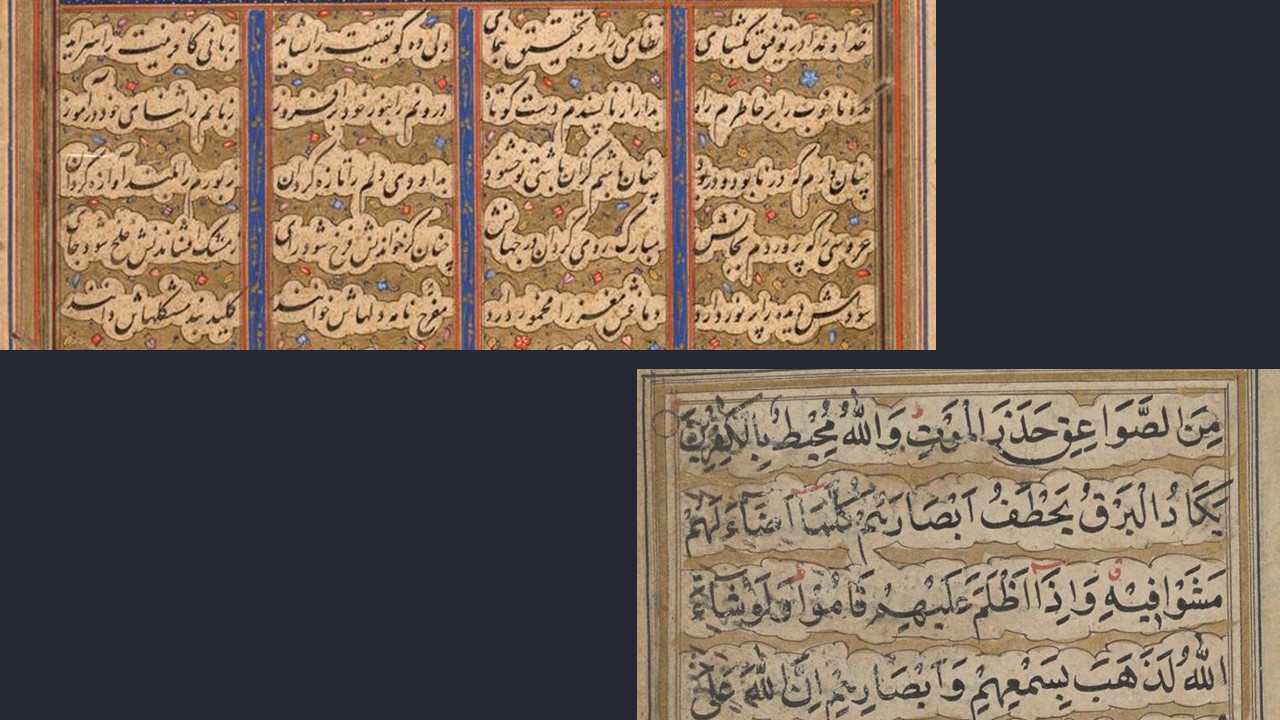 خداوندا در توفیق بگشای نظامی را ره تحقیق بنمای دلی ده کو یقینت را بشاید زبانی کافرینت را سراید
مده ناخوب را بر خاطرم راه بدار از ناپسندم دست کوتاه درونم را بنور خود برافروز زبانم را ثنای خود درآموز
چنان دارم که در نابود و در بود چنان باشم کزان باشی تو خشنود بداودی دلم را تازه گردان زبورم را بلند آوازه گردان
عروسی را که پروردم بجانش مبارک روی گردان در جهانش چنان کز خواندنش فرخ شود رای ز مشک افشاندنش خلخ شود جای
سوادش دیده را پر نور دارد دماغش مغز را مخمور دارد مفرح نامه دلهاش خوانند کلید بند مشکلهاش دانند
مِنَ الصَّوَاعِقِ حَذَرَ الْمَوْتِ وَاللّٰهُ مُحِيْطٌ بِالْكٰفِرِيْنَ
يَكَادُ الْبَرْقُ يَخْطَفُ اَبْصَارَهُمْ كُلَّمَا اَضَآءَ لَهُمْ
مَشَوْا فِيْهِ وَاِذَا اَظْلَمَ عَلَيْهِمْ قَامُوْا وَلَوْ شَآءَ
اللّٰهُ لَذَهَبَ بِسَمْعِهِمْ وَاَبْصَارِهِمْ اِنَّ اللّٰهَ عَلٰى